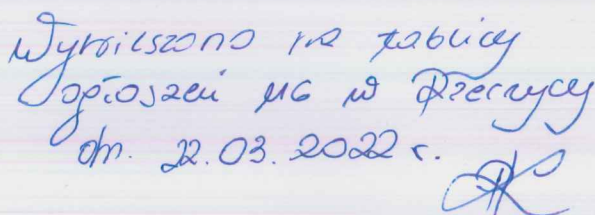 Wywieszono na tablicy
ogłoszeń UG w Rzeczycy
dn. 22.03.2022 r.